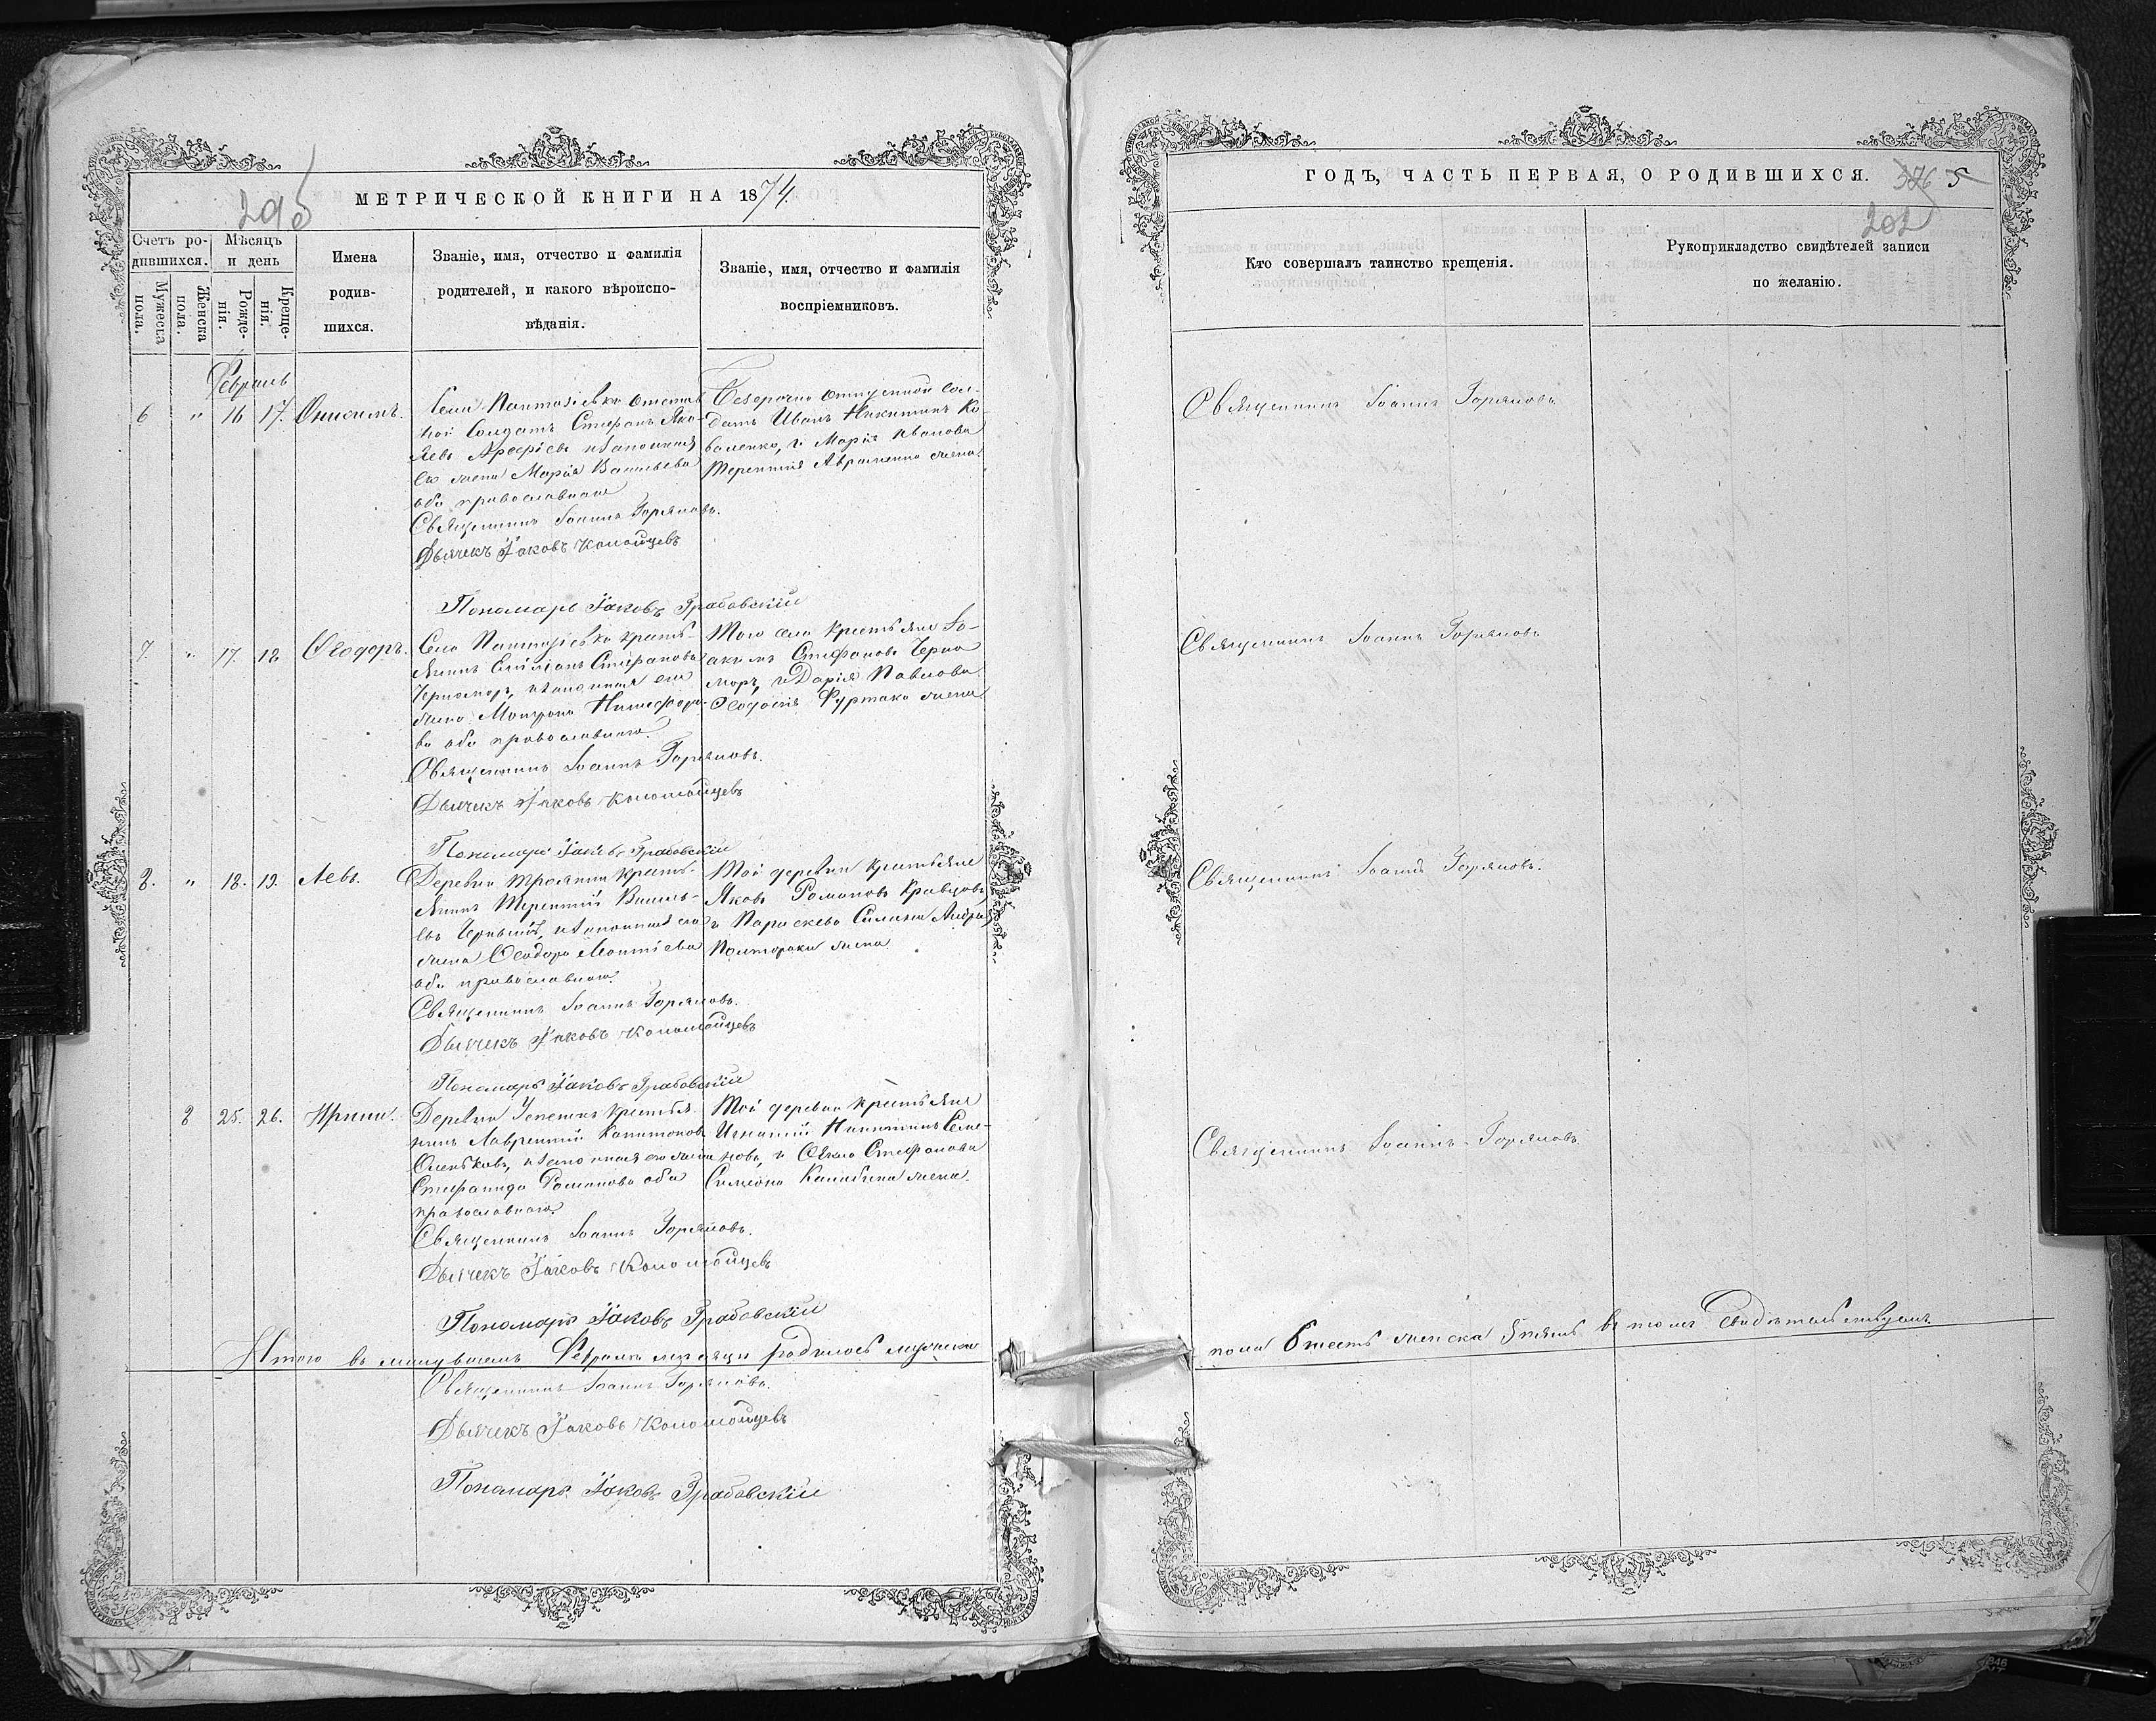 295
МЕТРИЧЕСКОЙ КНИГИ НА 1874
Счетъ ро-
дившихся.
Мужеска
пола.
Женска
пола.
Мѣсяцъ
и день
Рожде-
нія.
Креще-
нія.
Имена
родив-
шихся.
Званіе, имя, отчество и фамилія
родителей, и какого вѣроиспо-
вѣданія.
Званіе, имя, отчество и фамилія
воспріемниковъ.
Февраль
6 " 16 17. Онисимъ.
Села отстав
ной Солдатъ Стефанъ Яко
влевъ Арефіевъ и законная
его жена Марія Васильева
оба православнаго
Священникъ Іоаннъ Горяновъ.
Дьячекъ Іаковъ Коломойцевъ
Пономарь Іаковъ Грабовскій
Безсрочно отпускной сол-
датъ Иванъ Никитинъ Ко
валенко, и Марія Иванова
Терентія Авраменко жена.
7. " 17. 18 Ѳеодоръ.
Села кресть-
янинъ Стефановъ
Черноморъ, и законная его
жена Матрона Никифоро-
ва оба православнаго.
Священникъ Іоаннъ Горяновъ.
Дьячекъ Іаковъ Коломойцевъ
Пономарь Іаковъ Грабовскій
Того села крестьяне Іо-
акимъ Стефановъ Черно
моръ, и Дарія Павлова
Ѳеодосія жена
8. " 18. 19. Левъ.
Деревни Трояны кресть-
янинъ Терентій Василь-
евъ и законная его
жена Ѳеодора Леонтіева
оба православнаго.
Священникъ Іоаннъ Горяновъ.
Дьячекъ Іаковъ Коломойцевъ
Пономарь Іаковъ Грабовскій
Той деревни крестьяне
Яковъ Романовъ Кравцовъ,
и Параскева Силина
Полтораки жена.
8 25. 26. Ирина.
Деревни Успенки крестья-
нинъ Лаврентій Капитоновъ
и законная его жена
Стефанида Романова оба
православнаго.
Священникъ Іоаннъ Горяновъ.
Дьячекъ Іаковъ Коломойцевъ
Пономарь Іаковъ Грабовскій
Той деревни крестьяне
Игнатій Никитинъ Семе-
новъ, и Ѳекла Стефанова
Симеона жена.
Итого въ минувшемъ Февралѣ мѣсяцѣ родилось мужеска
Священникъ Іоаннъ Горяновъ.
Дьячекъ Іаковъ Коломойцевъ
Пономарь Іаковъ Грабовскій
ГОДЪ, ЧАСТЬ ПЕРВАЯ, О РОДИВШИХСЯ.
5
202
Кто совершалъ таинство крещенія.
Рукоприкладство свидѣтелей записи
по желанію.
Священникъ Іоаннъ Горяновъ
Священникъ Іоаннъ Горяновъ
Священникъ Іоаннъ Горяновъ.
Священникъ Іоаннъ Горяновъ
пола 8 женска въ томъ свидѣтельствуемъ